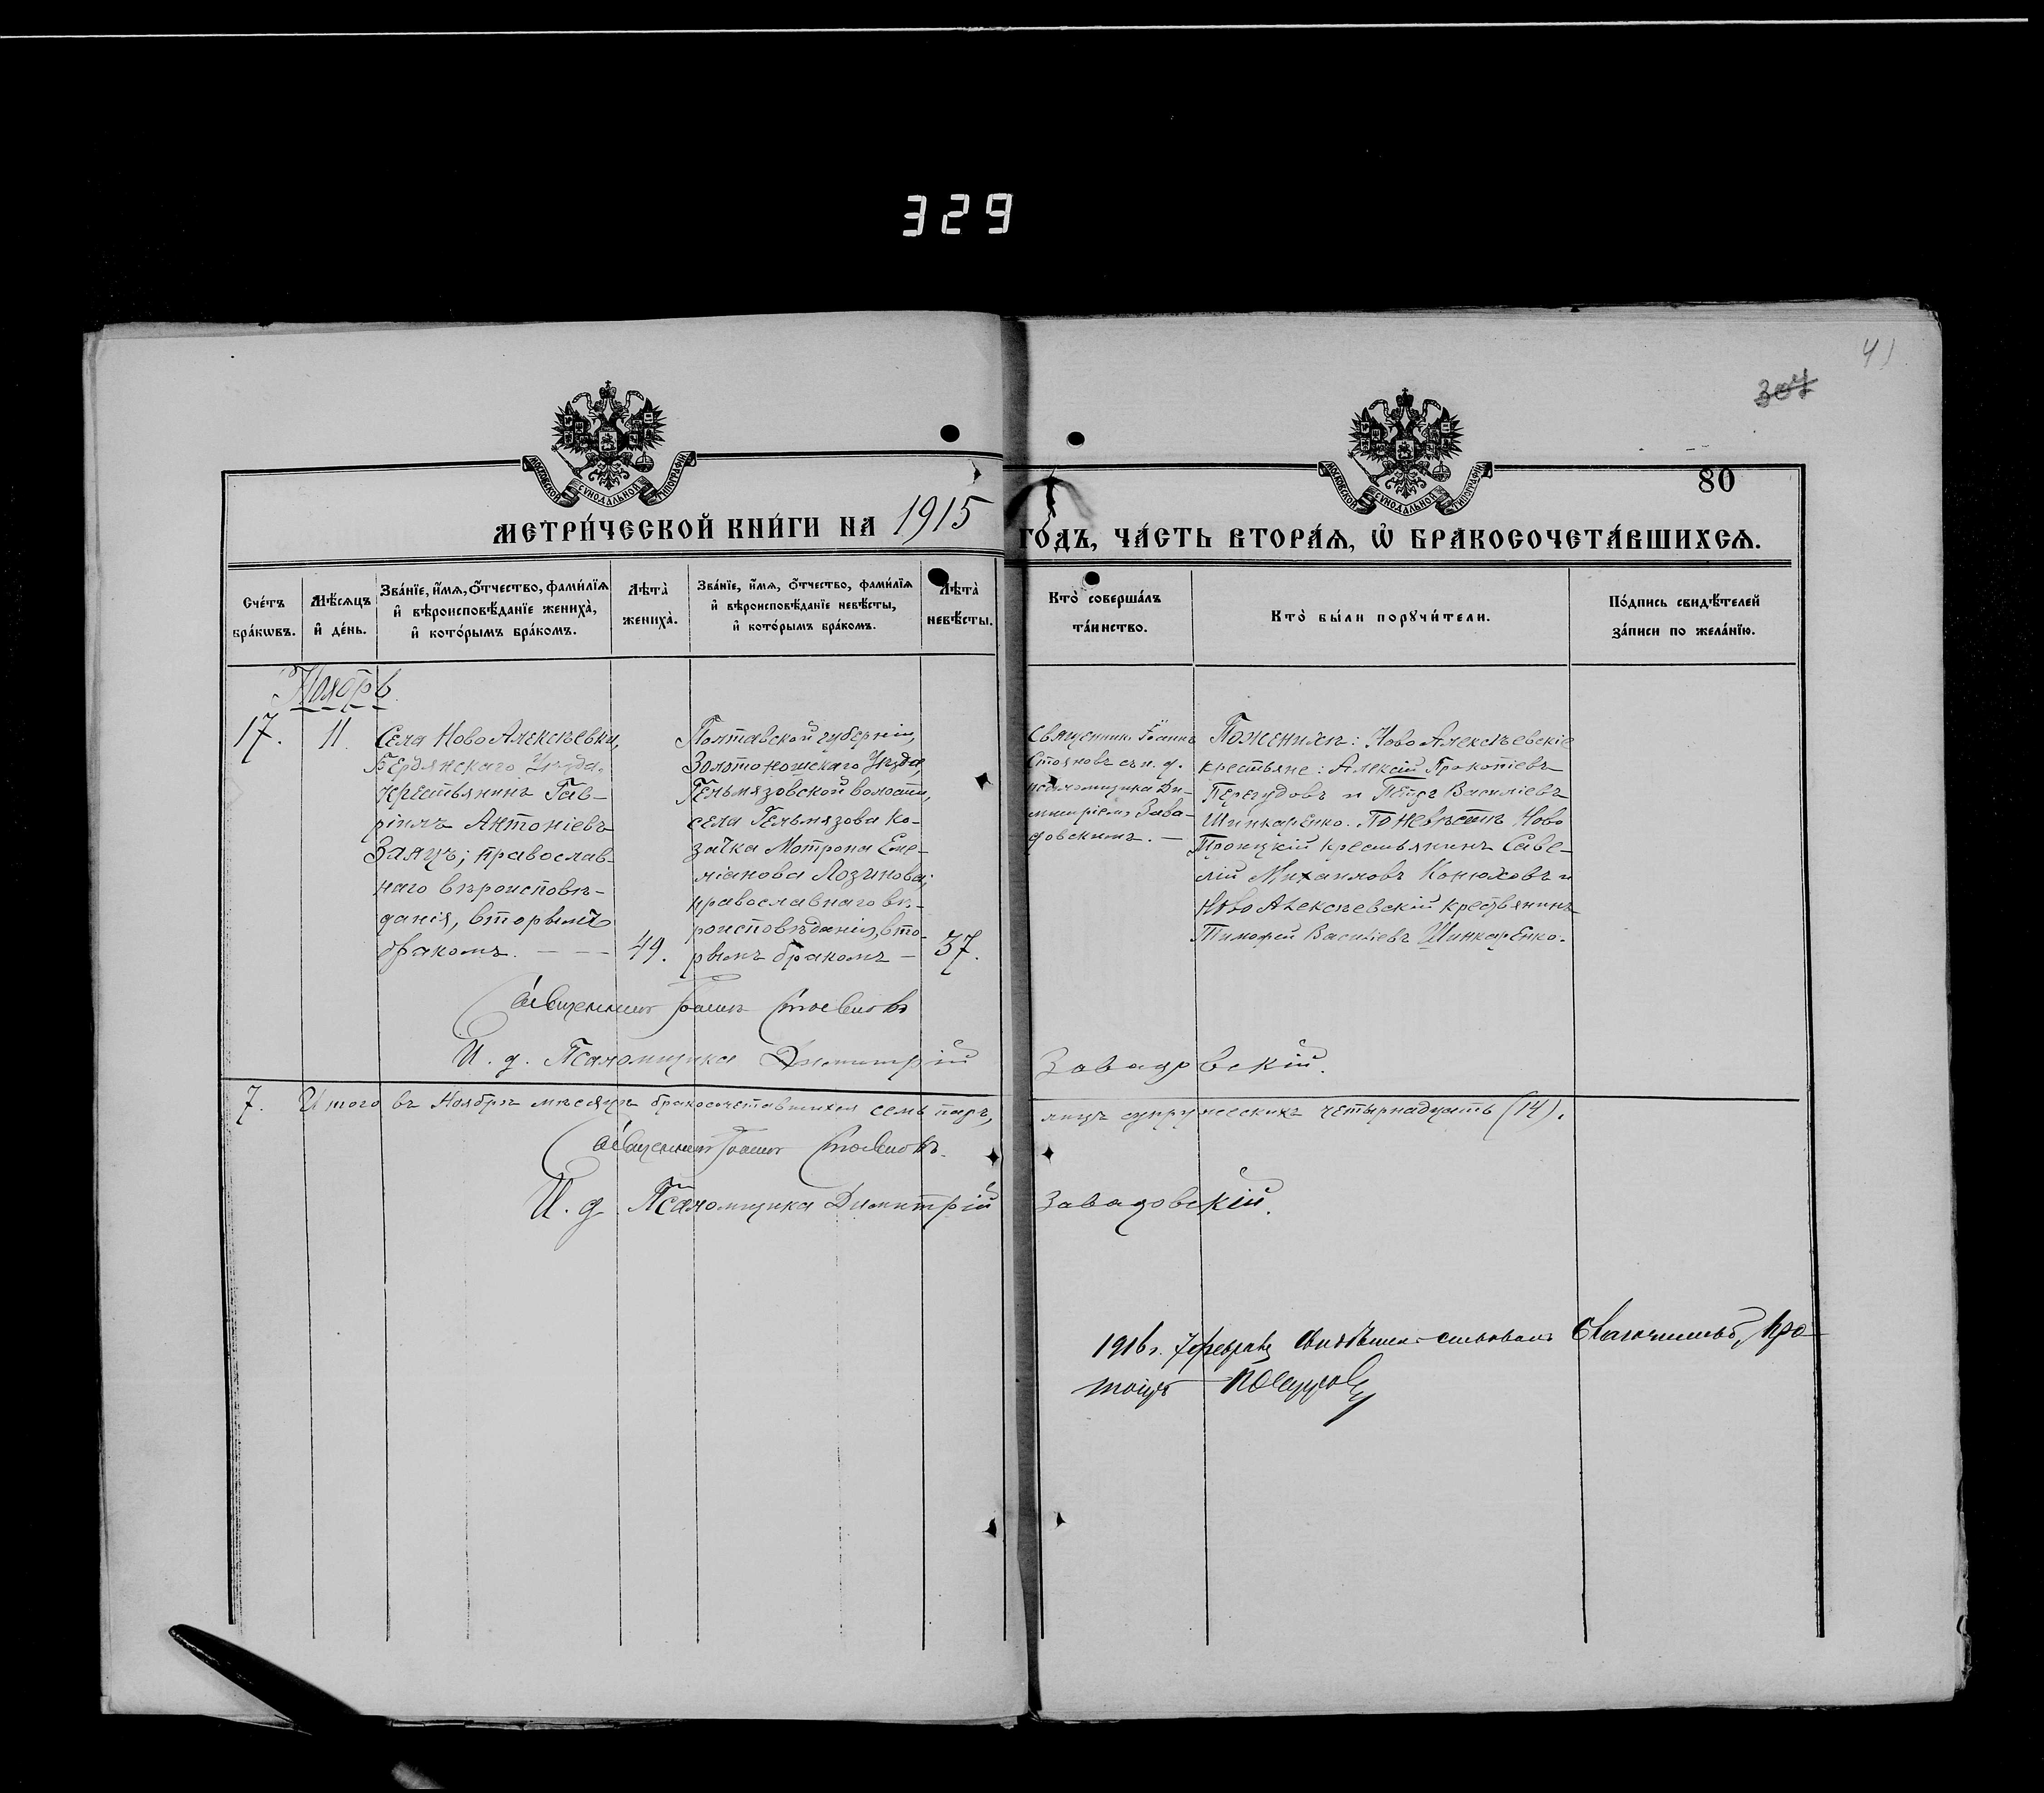 329
41
307
МОСКОВСКОЙ СУНОДАЛЬНОЙ ТИПОГРАФІИ
МОСКОВСКОЙ СУНОДАЛЬНОЙ ТИПОГРАФІИ
80
МЕТРИ́ЧЕСКОЙ КНИ́ГИ НА 1915 ГО́ДЪ, ЧА́СТЬ ВТОРА́Ѧ, Ѡ҆ БРАКОСОЧЕТА́ВШИХСѦ.
Сче́тъ
бра́кѡвъ.
Мѣ́сѧцъ
и҆ де́нь.
Зва́нїе, и҆́мѧ, ѻ҆́тчество, фами́лїѧ
и҆ вѣроисповѣ́данїе жениха̀,
и҆ кото́рымъ бра́комъ.
Лѣ́та̀
жениха̀.
Зва́нїе, и҆́мѧ, ѻ҆́тчество, фами́лїѧ
и҆ вѣроисповѣ́данїе невѣ́сты,
и҆ кото́рымъ бра́комъ.
Лѣ́та̀
невѣ́сты.
Кто̀ соверша́лъ
та́инство.
Кто̀ бы́ли порꙋчи́тели.
По́дпись свидѣ́телей
за́писи по жела́нїю.
Ноябрь
17.
11.
Села Ново Алексѣевки,
Бердянскаго Уѣзда.
крестьянинъ Гав-
ріилъ Антоніевъ
Заяцъ; православ-
наго вѣроисповѣ-
данія, вторымъ
бракомъ. — — —
49.
Полтавской губерніи,
Золотоношскаго Уѣзда,
Гельмязовской волости,
села Гельмязова ко-
зачка Мотрона Еме-
ліанова Лозинова;
православнаго вѣ-
роисповѣданія, вто-
рымъ бракомъ —
37.
Священникъ Іоаннъ
Стояновъ съ и. д.
псаломщика Ди-
митріемъ Зава-
довскимъ. —
По женихѣ: Ново Алексѣевскіе
крестьяне: Алексій Прокопіевъ
Перегудовъ и Петръ Василіевъ
Шинкаренко. По невѣстѣ Ново
Троицкій крестьянинъ Саве-
лій Михаиловъ Конюховъ и
Ново Алексѣевскій крестьянинъ
Тимофей Василіевъ Шинкаренко.
Священникъ Іоаннъ Стояновъ
И. д. Псаломщика Димитрій Завадовскій.
7. Итого въ Ноябрѣ мѣсяцѣ бракосочетавшихся семь паръ, лицъ супружескихъ четырнадцать (14).
Священникъ Іоаннъ Стояновъ.
И. д. Псаломщика Димитрій Завадовскій.
1916 г. 7 февраля свидѣтельствовалъ Благочинный, Про-